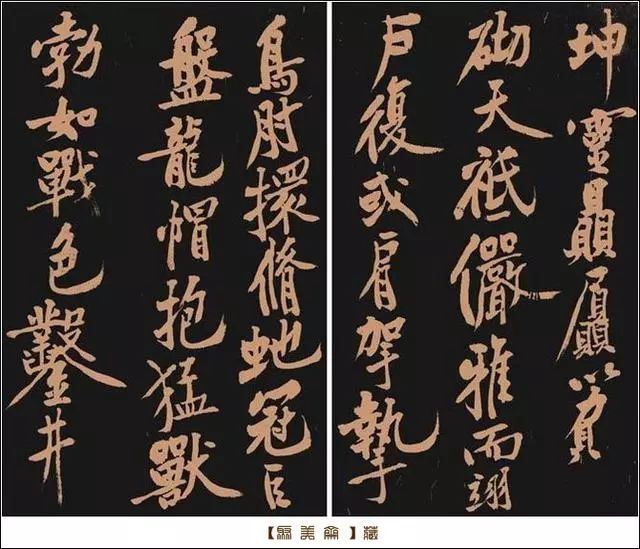 坤靈贔屭以負
砌天祇儼雅而翊
戶復或肩挐摯
鳥肘擐脩虵冠巨
盤龍帽抱猛獸
勃如戰色鑿井
美 藏